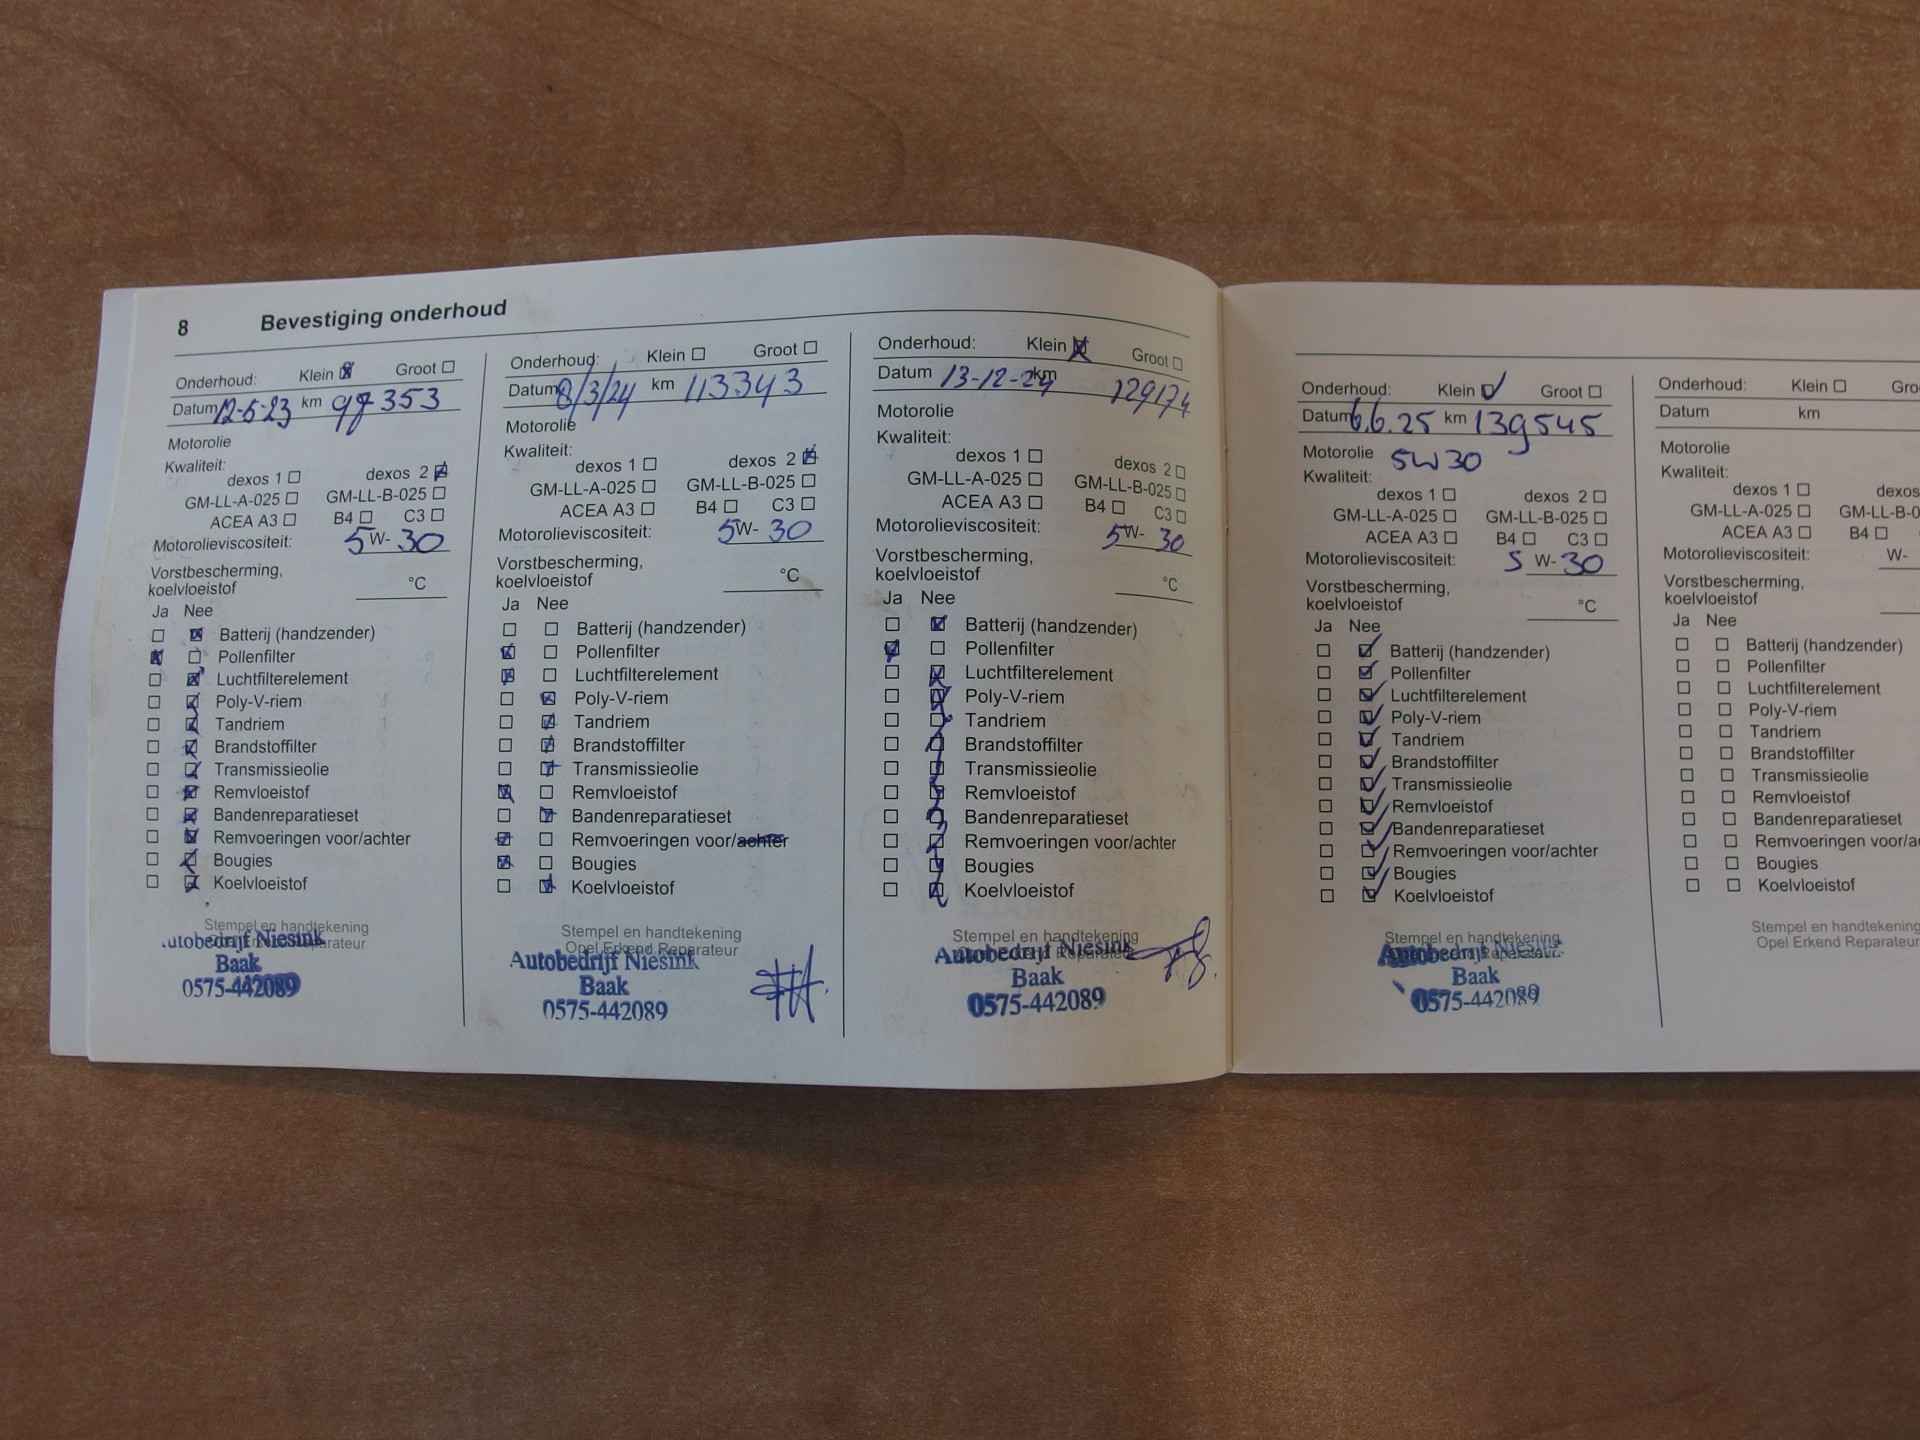 8 Bevestiging onderhoud
Onderhoud: Klein Groot
Datum 12-5-23 km 97353
Motorolie
Kwaliteit:
dexos 1 dexos 2
GM-LL-A-025 GM-LL-B-025
ACEA A3 B4 C3
Motorolieviscositeit: 5 W- 30
Vorstbescherming,
koelvloeistof °C
Ja Nee
Batterij (handzender)
Pollenfilter
Luchtfilterelement
Poly-V-riem
Tandriem
Brandstoffilter
Transmissieolie
Remvloeistof
Bandenreparatieset
Remvoeringen voor/achter
Bougies
Koelvloeistof
Stempel en handtekening
Opel Erkend Reparateur
Autobedrijf Niesink
Baak
0575-442089
Onderhoud: Klein Groot
Datum 8/3/24 km 113343
Motorolie
Kwaliteit:
dexos 1 dexos 2
GM-LL-A-025 GM-LL-B-025
ACEA A3 B4 C3
Motorolieviscositeit: 5 W- 30
Vorstbescherming,
koelvloeistof °C
Ja Nee
Batterij (handzender)
Pollenfilter
Luchtfilterelement
Poly-V-riem
Tandriem
Brandstoffilter
Transmissieolie
Remvloeistof
Bandenreparatieset
Remvoeringen voor/achter
Bougies
Koelvloeistof
Stempel en handtekening
Opel Erkend Reparateur
Autobedrijf Niesink
Baak
0575-442089
Onderhoud: Klein Groot
Datum 13-12-24 km 129174
Motorolie
Kwaliteit:
dexos 1 dexos 2
GM-LL-A-025 GM-LL-B-025
ACEA A3 B4 C3
Motorolieviscositeit: 5 W- 30
Vorstbescherming,
koelvloeistof °C
Ja Nee
Batterij (handzender)
Pollenfilter
Luchtfilterelement
Poly-V-riem
Tandriem
Brandstoffilter
Transmissieolie
Remvloeistof
Bandenreparatieset
Remvoeringen voor/achter
Bougies
Koelvloeistof
Stempel en handtekening
Opel Erkend Reparateur
Autobedrijf Niesink
Baak
0575-442089
Onderhoud: Klein Groot
Datum 6.6.25 km 139545
Motorolie 5W30
Kwaliteit:
dexos 1 dexos 2
GM-LL-A-025 GM-LL-B-025
ACEA A3 B4 C3
Motorolieviscositeit: 5 W- 30
Vorstbescherming,
koelvloeistof °C
Ja Nee
Batterij (handzender)
Pollenfilter
Luchtfilterelement
Poly-V-riem
Tandriem
Brandstoffilter
Transmissieolie
Remvloeistof
Bandenreparatieset
Remvoeringen voor/achter
Bougies
Koelvloeistof
Stempel en handtekening
Opel Erkend Reparateur
Autobedrijf Niesink
Baak
0575-442089
Onderhoud: Klein Gro
Datum km
Motorolie
Kwaliteit:
dexos 1 dexos
GM-LL-A-025 GM-LL-B-0
ACEA A3 B4
Motorolieviscositeit: W-
Vorstbescherming,
koelvloeistof
Ja Nee
Batterij (handzender)
Pollenfilter
Luchtfilterelement
Poly-V-riem
Tandriem
Brandstoffilter
Transmissieolie
Remvloeistof
Bandenreparatieset
Remvoeringen voor/a
Bougies
Koelvloeistof
Stempel en handtekening
Opel Erkend Reparateur